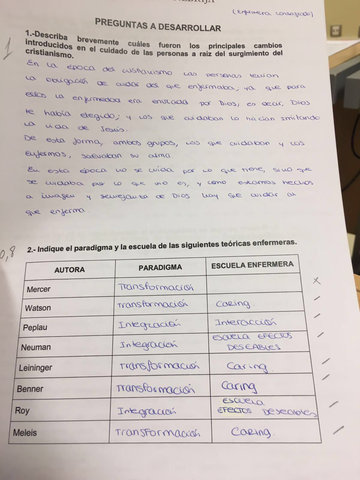 (Enfermera consagrada)
PREGUNTAS A DESARROLLAR
1
1.-Describa brevemente cuáles fueron los principales cambios
introducidos en el cuidado de las personas a raíz del surgimiento del
cristianismo.
En la época del cristianismo las personas tenían
la obligación de cuidar del que enfermaba, ya que para
estos la enfermedad era enviada por Dios, es decir, Dios
te había elegido; y los que cuidaban lo hacían imitando
la vida de Jesús.
De esta forma, ambos grupos, los que cuidaban y los
enfermos, salvaban su alma.
En esta época no se cuida por lo que tiene, sino que
se cuidaba por lo que uno es, y como estamos hechos
a imagen y semejanza de Dios hay que cuidar al
que enferma.
0,8
2.- Indique el paradigma y la escuela de las siguientes teóricas enfermeras.
AUTORA PARADIGMA ESCUELA ENFERMERA
Mercer Transformación
Watson Transformación Caring
Peplau Integración Interacción
Neuman Integración ESCUELA EFECTOS DESEABLES
Leininger Transformación Caring
Benner Transformación Caring
Roy Integración ESCUELA EFECTOS DESEABLES
Meleis Transformación Caring